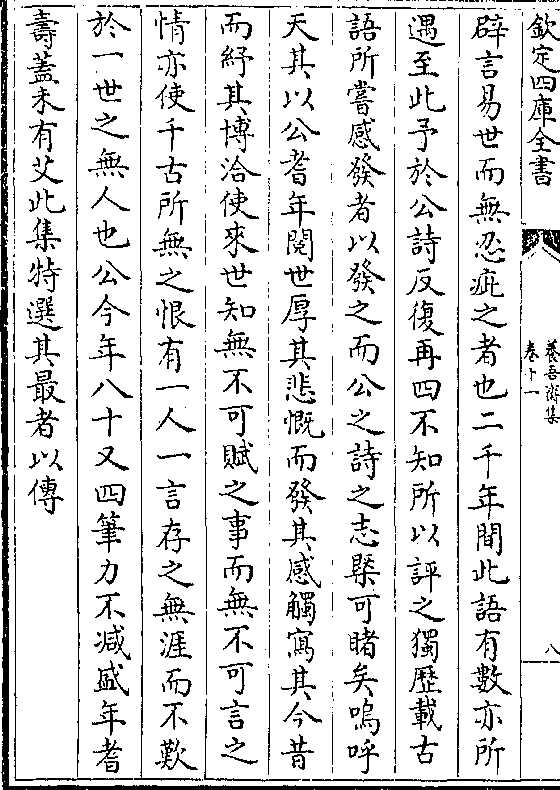 欽定四庫全書
養吾齋集
卷十一
八
辟言易世而無忍疵之者也二千年間此語有數亦所
遇至此予於公詩反復再四不知所以評之獨歷載古
語所嘗感發者以發之而公之詩之志槩可睹矣嗚呼
天其以公耆年閱世厚其悲慨而發其感觸寫其今昔
而紓其博洽使來世知無不可賦之事而無不可言之
情亦使千古所無之恨有一人一言存之無涯而不歎
於一世之無人也公今年八十又四筆力不減盛年耆
壽蓋未有艾此集特選其最者以傳